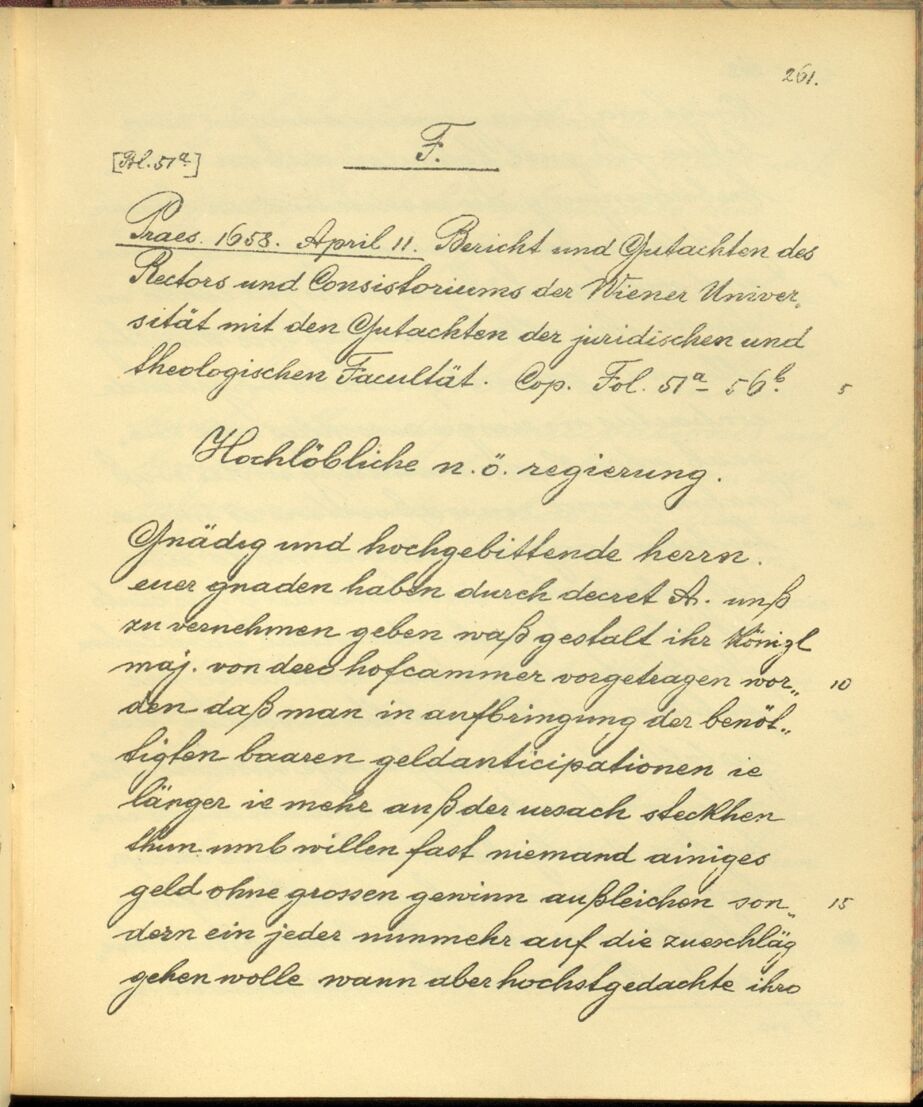 261.
F.
[Bl. 51a.]
Praes. 1658. April 11. Bericht und Gutachten des
Rectors und Consistoriums der Wiener Univer„
sität mit den Gutachten der juridischen und
theologischen Facultät. Cop. Fol. 51a – 56b.
5
Hochlöbliche n. ö. regierung.
Gnädig und hochgebittende herrn.
euer gnaden haben durch decret A. unß
zu vernehmen geben waß gestalt ihr Königl
maj. von dero hofcammer vorgetragen wor„
10
den daß man in aufbringung der benöt„
tigten baaren geldanticipationen ie
länger ie mehr auß der ursach steckhen
thun umb willen fast niemand ainiges
geld ohne grossen gewinn außleichen son„
15
dern ein jeder nunmehr auf die zueschläg
gehen wolle wann aber hochstgedachte ihro